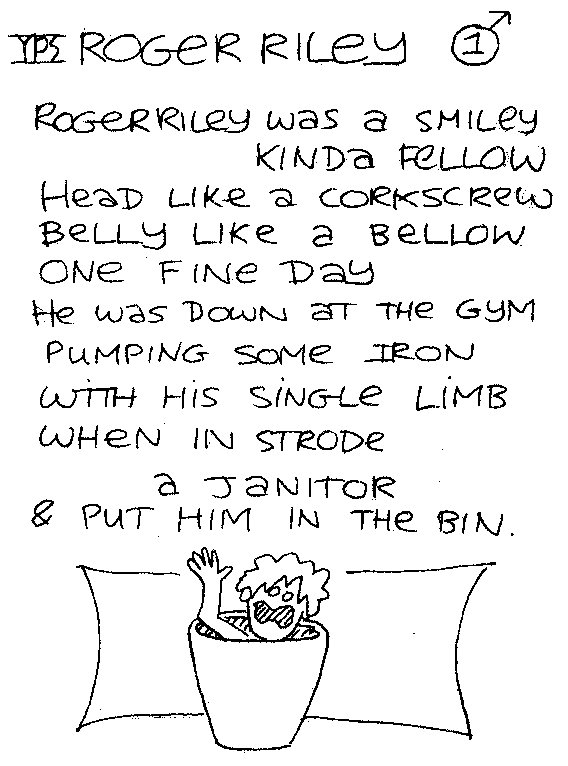 YPS ROGER RILEY 1
ROGER RILEY WAS A SMILEY
KINDA FELLOW
HEAD LIKE A CORKSCREW
BELLY LIKE A BELLOW
ONE FINE DAY
HE WAS DOWN AT THE GYM
PUMPING SOME IRON
WITH HIS SINGLE LIMB
WHEN IN STRODE
A JANITOR
& PUT HIM IN THE BIN.